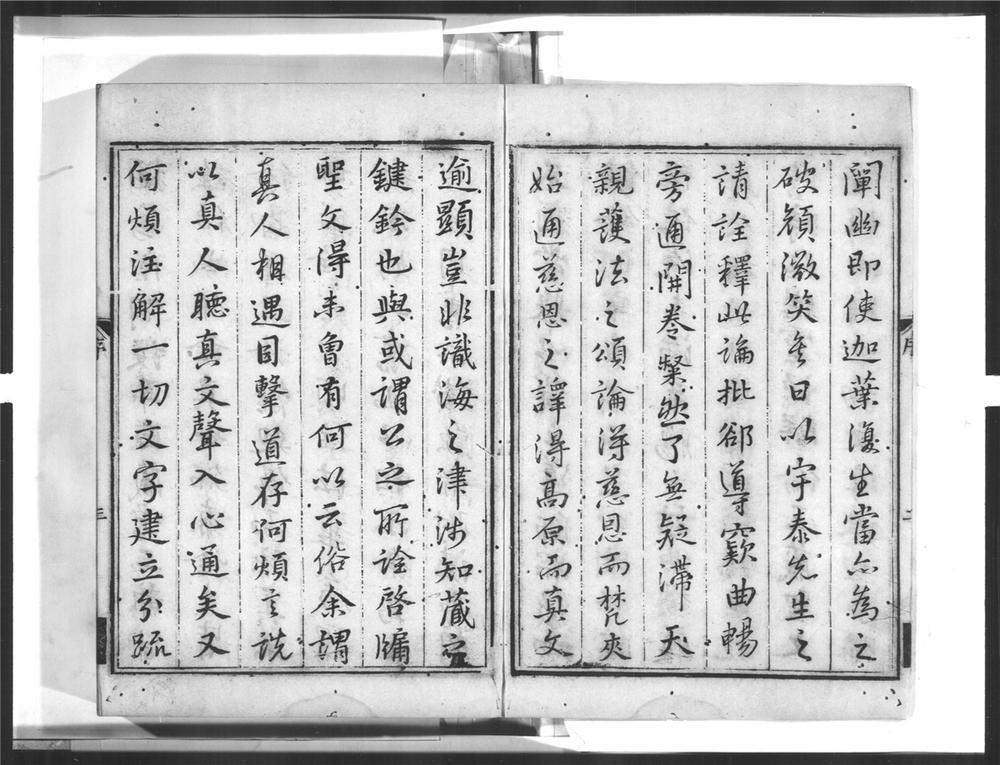 闡幽即使迦葉復生當亦為之
破顏微笑矣日以宇泰先生之
請詮釋此論批郤導窾曲暢
旁通開卷粲然了無疑滯天
親護法之頌論得慈恩而梵夾
始通慈恩之譯得高原而真文
逾顯豈非識海之津涉知藏之
鍵鈐也與或謂公之所詮啓牖
聖文得未曾有何以云俗余謂
真人相遇目擊道存何煩言詵
以真人聽真文聲入心通矣又
何煩注解一切文字建立分疏
序
序
二
三